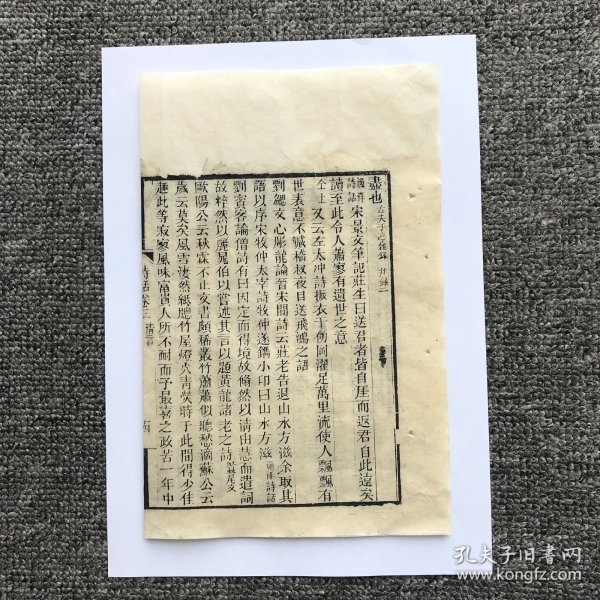 盡也古夫于亭雜錄
漁洋詩話宋景文筆記莊生曰送君者皆自厓而返君自此遠矣
讀至此令人蕭寥有遺世之意
仝上又云左太沖詩振衣千仞岡濯足萬里流使人飄飄有
世表意不減嵇叔夜目送飛鴻之語
劉勰文心彫龍論晉宋間詩云莊老告退山水方滋余取其
語以序宋牧仲太宰詩牧仲遂鐫小印曰山水方滋漁洋詩話
劉賓客論僧詩有曰因定而得境故翛然以清由慧而遣詞
故粹然以麗晁伯以嘗述其言以題黃龍諸老之詩蠶尾文
歐陽公云秋霖不止文書頗稀叢竹蕭蕭似聽愁滴蘇公云
歲云莫矣風雪淒然紙聰竹屋燈火青熒時于此間得少佳
趣此等寂寥風味富貴人所不耐而予最喜之政若一年中
詩話卷三清言
孔夫子旧书网
www.kongfz.com